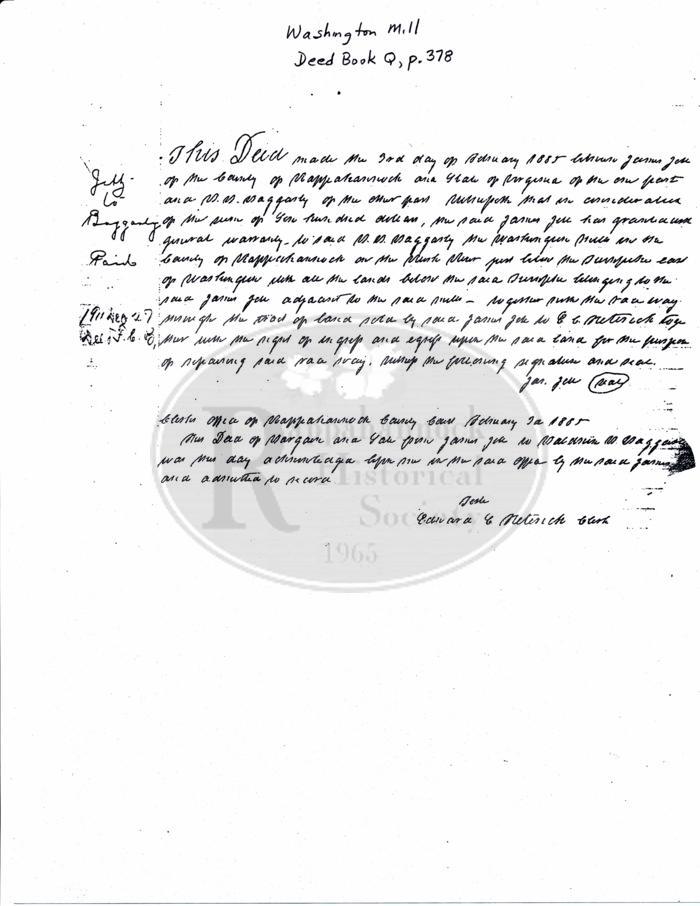 Washington Mill
Deed Book Q, p. 378
This Deed made the 3rd day of February 1885 between James Jett
of the County of Rappahannock and State of Virginia of the one part
and B. B. Baggarly of the other part Witnesseth that in consideration
of the sum of Ten hundred dollars, the said James Jett has granted with
general warranty to said B. B. Baggarly the Washington Mills in the
County of Rappahannock on the Rush River just below the Turnpike east
of Washington with all the lands below the said Turnpike belonging to the
said James Jett adjacent to the said mills - together with the race way
through the tract of land sold by said James Jett to E C Heterick toge
ther with the right of ingress and egress upon the said land for the purpose
of repairing said race way. Witness the following signature and seal.
Jas. Jett (seal)
Jett
to
Baggarly
Paid
1911 27
Clerks office of Rappahannock County Court February 3d 1885
This Deed of Bargain and Sale from James Jett to B Baggarly
was this day acknowledged before me in the said office by the said James
and admitted to record
Teste
Edward C Heterick Clerk
Rappahannock
Historical
Society
1965